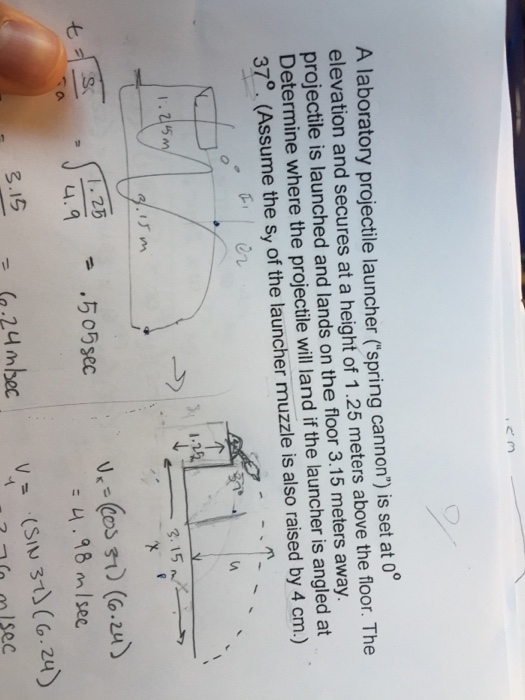 A laboratory projectile launcher ("spring cannon") is set at 0°
elevation and secures at a height of 1.25 meters above the floor. The
projectile is launched and lands on the floor 3.15 meters away.
Determine where the projectile will land if the launcher is angled at
37°. (Assume the sy of the launcher muzzle is also raised by 4 cm.)
0°
1.25m
3.15 m
t = √ s / .5a = √ 1.25 / 4.9 = .505sec
3.15 = 6.24 m/sec
37°
1.29
3.15 m
x
Vx = (cos 37) (6.24)
= 4.98 m/sec
Vy = (SIN 37) (6.24)
m/sec